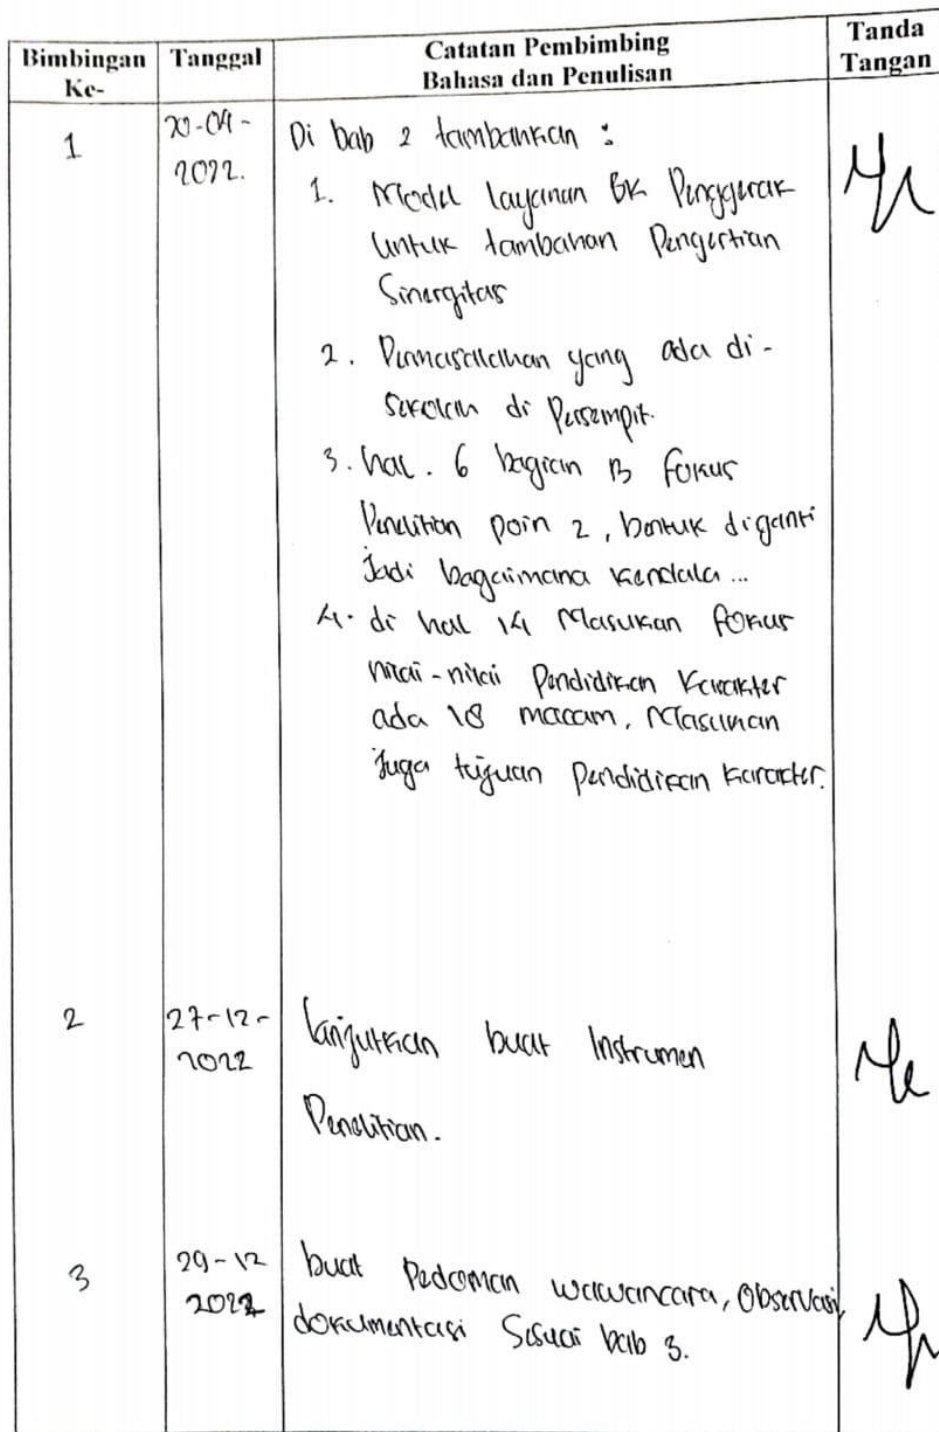 Bimbingan Ke-
Tanggal
Catatan Pembimbing
Bahasa dan Penulisan
Tanda
Tangan
1
20-04-
2022.
Di bab 2 tambahkan :
1. Model layanan BK Penggerak
untuk tambahan Pengertian
Sinergitas
2. Permasalahan yang ada di-
sekolah di Persempit.
3. hal. 6 bagian B fokus
Penelitian poin 2, bentuk diganti
Jadi bagaimana kendala ...
4. di hal 14 Masukan fokus
nilai-nilai Pendidikan Karakter
ada 18 macam, Masukan
Juga tujuan Pendidikan karakter.
2
27-12-
2022
lanjutkan buat Instrumen
Penelitian.
3
29-12
2022
buat Pedoman wawancara, Observasi,
dokumentasi Sesuai bab 3.